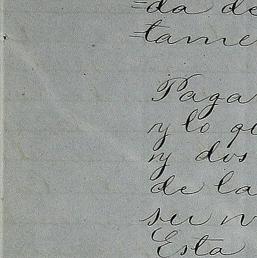 =da de
=tame
Paga
y lo q
y dos
de la
su n
Esta